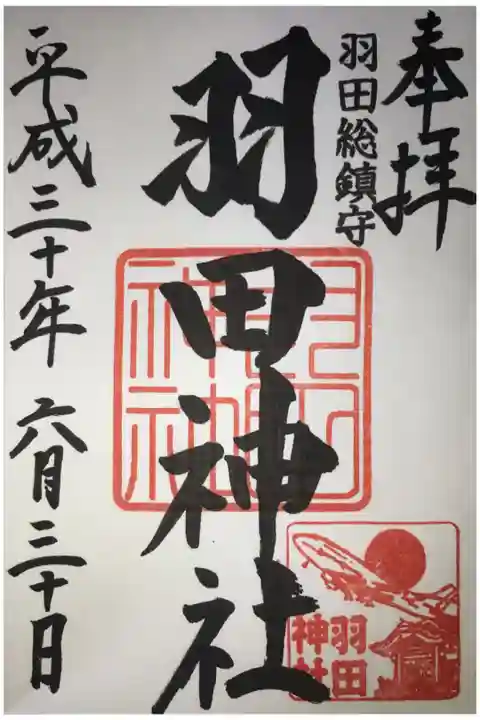 奉拝
羽田総鎮守
羽田神社
平成三十年 六月三十日
羽田
神社
羽田
神社